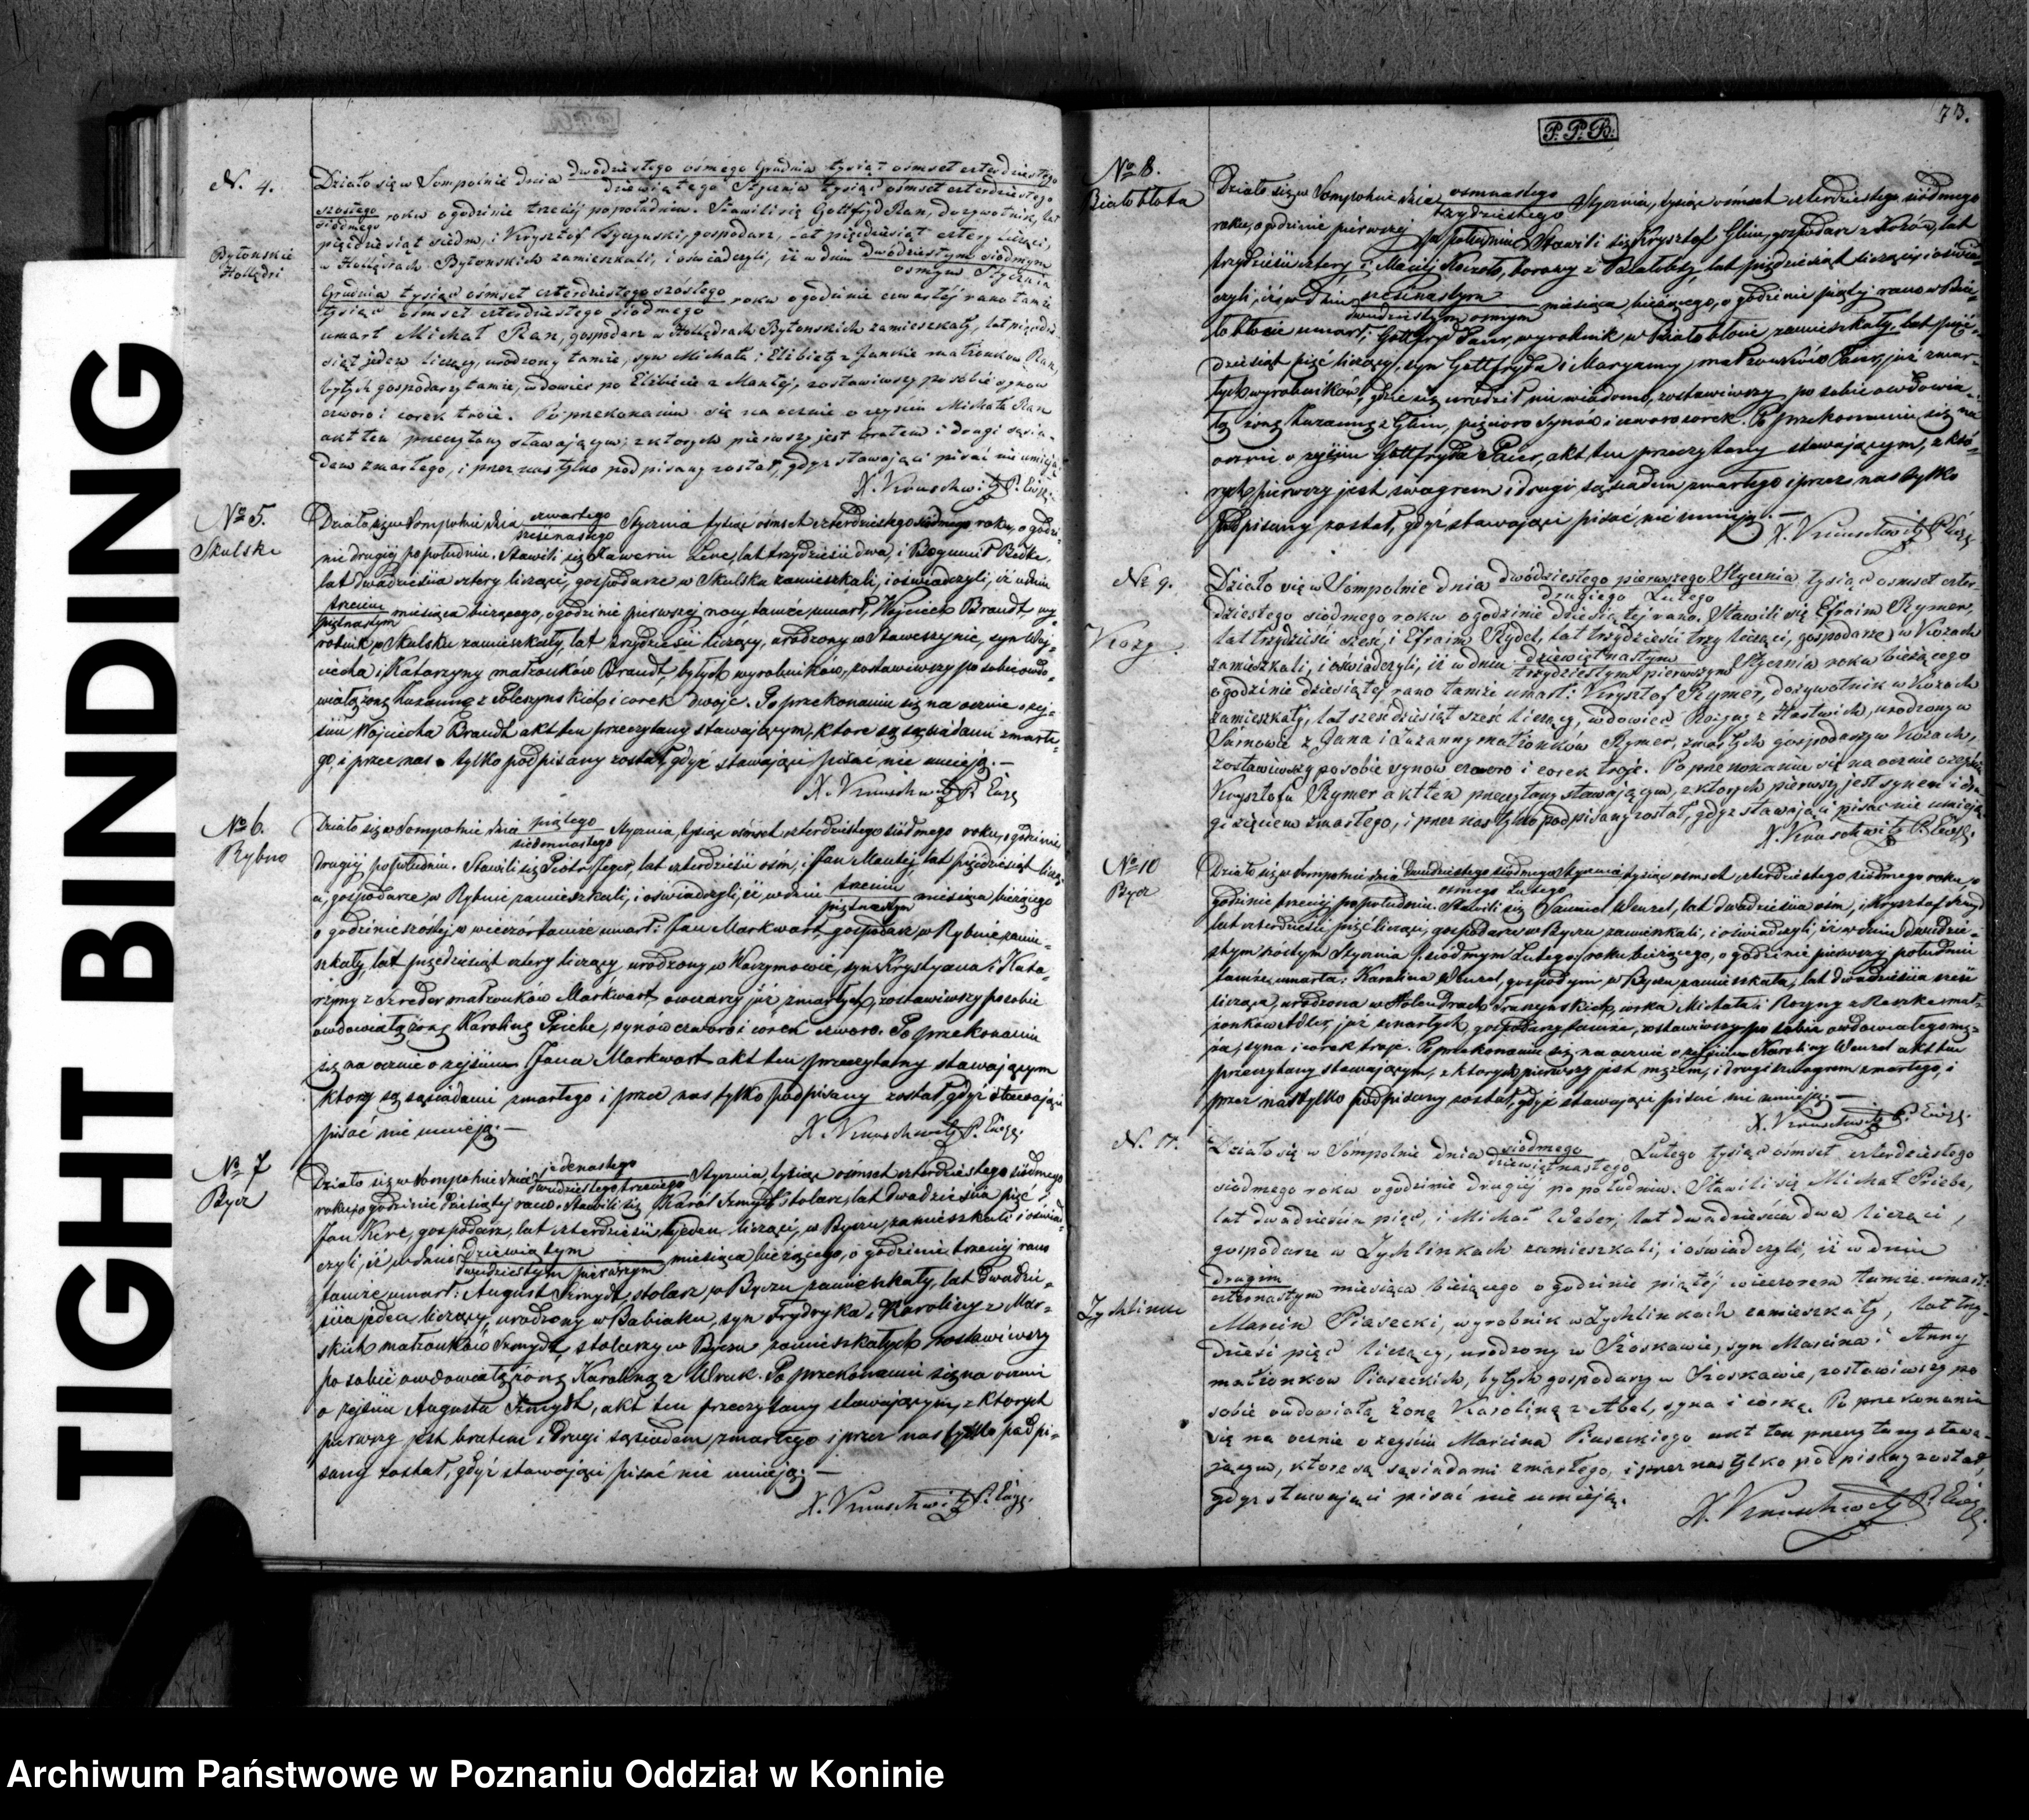 TIGHT BINDING
N. 4.
Bytońskie
Hollędri
Działo się w Sompolnie dnia dwódziestego ósmego Grudnia tysiąc ośmset czterdziestego
dziewiątego Stycznia tysiąc ośmset czterdziestego
szóstego
siódmego roku o godzinie trzeciej popołudniu. Stawili się Gottfryd Ran, dożywotnik, lat
pięćdziesiąt siedm, i Krysztof gospodarz, lat pięćdziesiąt cztery liczący,
w Hollędrach Bytońskich zamieszkali, i oświadczyli, iż w dniu dwódziestym siódmym
osmym Stycznia
Grudnia tysiąc ośmset czterdziestego szóstego
tysiąc ośmset czterdziestego siódmego roku o godzinie czwartéj rano tamże
umarł Michał Ran, gospodarz w Hollędrach Bytonskich zamieszkały, lat pięćdzie-
siąt jeden liczący, urodzony tamże, syn Michała i Elżbiety z Janków małżonków Ran,
byłych gospodarzy tamże, wdowiec po Elżbiecie z Mantej, zostawiwszy po sobie synow
czworo i corek troie. Po przekonaniu się na ocznie o zejściu Michała Ran
akt ten przeczytany stawającym; z ktorych pierwszy jest bratem i drugi sąsia-
dem zmarłego, i przez nas tylko podpisany został, gdyż stawający pisać nie umieją.
X. Kruschwitz P. Ewg.
No 5.
Skulsk
Działo się w Sompolnie dnia czwartego
szesnastego Stycznia tysiąc ośmset czterdziestego siódmego roku, o godzi-
nie drugiéj popołudniu. Stawili się Xaweriu Lenc, lat trzydzieści dwa, i Bogumił Redke,
lat dwadzieścia cztery liczący, gospodarze w Skulsku zamieszkali, i oświadczyli, iż w dniu
trzecim
piętnastym miesiąca bieżącego, o godzinie pierwszej nocy tamże, umarł, Wojciech Brandt, wy-
robnik w Skulsku zamieszkały, lat trzydzieści liczący, urodzony w Stawcszynie, syn Woj-
ciecha i Katarzyny małżonków Brandt, byłych wyrobników, zostawiwszy po sobie owdo-
wiałą żonę Zuzannę z i corek dwoje. Po przekonaniu się na ocznie o zej-
ściu Wojciecha Brandt akt ten przeczytany stawającym, ktore są sąsiadami zmarłe-
go, i przez nas tylko podpisany został, gdyż stawający pisać nie umieją. —
X. Kruschwitz P. Ewg
No 6.
Rybno
Działo się w Sompolnie dnia piątego
siedmnastego Stycznia, tysiąc ośmset czterdziestego siódmego roku, o godzinie
drugiéj popołudniu. Stawili się Piotr Jeger, lat czterdzieści ośm, i Jan Mantej, lat pięćdziesiąt licz-
ą, gospodarze w Rybnie zamieszkali, i oświadczyli, iż w dniu trzecim
piętnastym miesiąca bieżącego
o godzinie szóstej w wieczór tamże umarł: Jan Markwart gospodarz w Rybnie zamie-
szkały, lat pięćdziesiąt cztery liczący urodzony w Naczymowie, syn Krystyana i Kata-
rzyny z Szreder małżonków Markwart owczarzy już zmarłych, zostawiwszy po sobie
owdowiałą żonę Karolinę Priebe, synów czworo i corek czworo. Po przekonaniu
się na ocznie o zejściu Jana Markwart akt ten przeczytany stawającym
ktorzy są sąsiadami zmarłego i przez nas tylko podpisany został, gdyż stawający
pisać nie umieją. —
X. Kruschwitz P. Ewg.
No 7
Bycz
Działo się w Sompolnie dnia jedenastego
dwudziestego trzeciego Stycznia, tysiąc ośmset czterdziestego siódmego
roku, o godzinie dziesiątej rano. Stawili się Karól Szmydt stolarz, lat dwadzieścia pięć i
Jan Kere, gospodarz, lat czterdzieści jeden liczący, w Byczu zamieszkali i oświad-
czyli, iż w dniu dziewiątym
dwudziestym pierwszym miesiąca bieżącego, o godzinie trzeciej rano
tamże umarł: August Szmydt, stolarz, w Byczu zamieszkały, lat dwadzie-
ścia jeden liczący, urodzony w Babiaku, syn Frydryka i Karoliny z Mar-
skich małżonków Szmydt, stolarzy w Byczu zamieszkałych zostawiwszy
po sobie owdowiałą żonę Karolinę z Wruk. Po przekonaniu się na ocznie
o zejściu Augusta Szmydt, akt ten przeczytany stawającym, z ktorych
pierwszy jest bratem i drugi sąsiadem zmarłego i przez nas tylko podpi-
sany został, gdyż stawający pisać nie umieją. —
X. Kruschwitz P. Ewg.
73.
P.P.B.
No 8.
Białobłota
Działo się w Sompolnie dnia osmnastego
trzydziestego Stycznia, tysiąc ośmset czterdziestego siódmego
roku, o godzinie pierwszej po południu. Stawili się Krysztof Glim, gospodarz z lat
trzydzieści cztery i Maciej borowy z Białobłoty, lat pięćdziesiąt liczący i oświad-
czyli, iż w dniu szesnastym
dwudziestym osmym miesiąca bieżącego, o godzinie piątej rano w Bia-
łobłocie umarł, Gottfryd Paier, wyrobnik, w Białobłocie zamieszkały, lat pięć-
dziesiąt pięć liczący, syn Gottfryda i Maryanny małżonków Paier, już zmar-
łych wyrobników, gdzie się urodził nie wiadomo, zostawiwszy po sobie owdowia-
łą żonę Zuzannę z Glim, pięcioro synów i czworo corek. Po przekonaniu się na
ocznie o zejściu Gottfryda Paier, akt ten przeczytany stawającym, z któ-
rych pierwszy jest szwagrem i drugi sąsiadem zmarłego i przez nas tylko
podpisany został, gdyż stawający pisać nie umieją. —
X. Kruschwitz P. Ewg.
Nr 9.
Działo się w Sompolnie dnia dwódziestego pierwszego Stycznia tysiąc ośmset czter-
drugiego Lutego
dziestego siódmego roku o godzinie dziesiątej rano. Stawili się Efraim Rymer,
lat trzydzieści sześć, i Efraim Rydel, lat trzydzieści trzy liczący, gospodarze w Kozach
zamieszkali, i oświadczyli, iż w dniu dziewiętnastym
trzydziestym pierwszym Stycznia roku bieżącego
o godzinie dziesiątej rano tamże umarł: Krysztof Rymer, dożywotnik w Kozach
zamieszkały, lat sześćdziesiąt sześć liczący, wdowiec Rozyny z urodzony w
z Jana i Zuzanny małżonków Rymer, zmarłych gospodarzy w Kozach,
zostawiwszy po sobie synow czworo i corek troje. Po przekonaniu się na ocznie o zejściu
Krysztofa Rymer akt ten przeczytany stawającym, z ktorych pierwszy jest synem i dru-
gi zięciem zmarłego, i przez nas tylko podpisany został, gdyż stawający pisać nie umieją.
X. Kruschwitz P. Ewg.
No 10
Bycz
Działo się w Sompolnie dnia dwudziestego siódmego Stycznia tysiąc ośmset czterdziestego siódmego roku, o
osmego Lutego
godzinie trzeciéj popołudniu. Stawili się Samuel Wenzel, lat dwadzieścia ośm, i Krysztof
lat czterdzieści pięć liczący, gospodarze w Byczu zamieszkali, i oświadczyli, iż w dniu dwudzie-
stym szóstym Stycznia (siódmym Lutego) roku bieżącego, o godzinie pierwszej południu
tamże, umarła: Karolina Wenzel, gospodyni w Byczu zamieszkała, lat dwadzieścia sześć
licząca, urodzona w Holendrach corka Michała i Rozyny z Raszke mał-
żonków Adler, już zmarłych, gospodarzy tamże, zostawiwszy po sobie owdowiałego mę-
ża, syna i corek troje. Po przekonaniu się na ocznie o zejściu Karoliny Wenzel akt ten
przeczytany stawającym, z ktorych pierwszy jest mężem, i drugi szwagrem zmarłego, i
przez nas tylko podpisany został, gdyż stawający pisać nie umieją. —
X. Kruschwitz P. Ewg.
N. 11.
Zychlinne
Działo się w Sompolnie dnia siódmego
dziewiętnastego Lutego tysiąc ośmset czterdziestego
siódmego roku o godzinie drugiéj po południu. Stawili się Michał Priebe,
lat dwadzieścia pięć, i Michał Weber, lat dwadzieścia dwa liczący,
gospodarze w Zychlinkach zamieszkali, i oświadczyli, iż w dniu
drugim
czternastym miesiąca bieżącego o godzinie piątéj wieczorem tamże umarł:
Marcin Piasecki, wyrobnik w Zychlinkach zamieszkały, lat trzy-
dzieści pięć liczący, urodzony w syn Marcina i Anny
małżonkow Piaseckich, byłych gospodarzy w zostawiwszy po
sobie owdowiałą żonę Karolinę z Abel, syna i corkę. Po przekonaniu
się na ocznie o zejściu Marcina Piaseckiego akt ten przeczytany stawa-
jącym, które są sąsiadami zmarłego, i przez nas tylko podpisany został,
gdyż stawający pisać nie umieją.
X. Kruschwitz P. Ewg.
Archiwum Państwowe w Poznaniu Oddział w Koninie